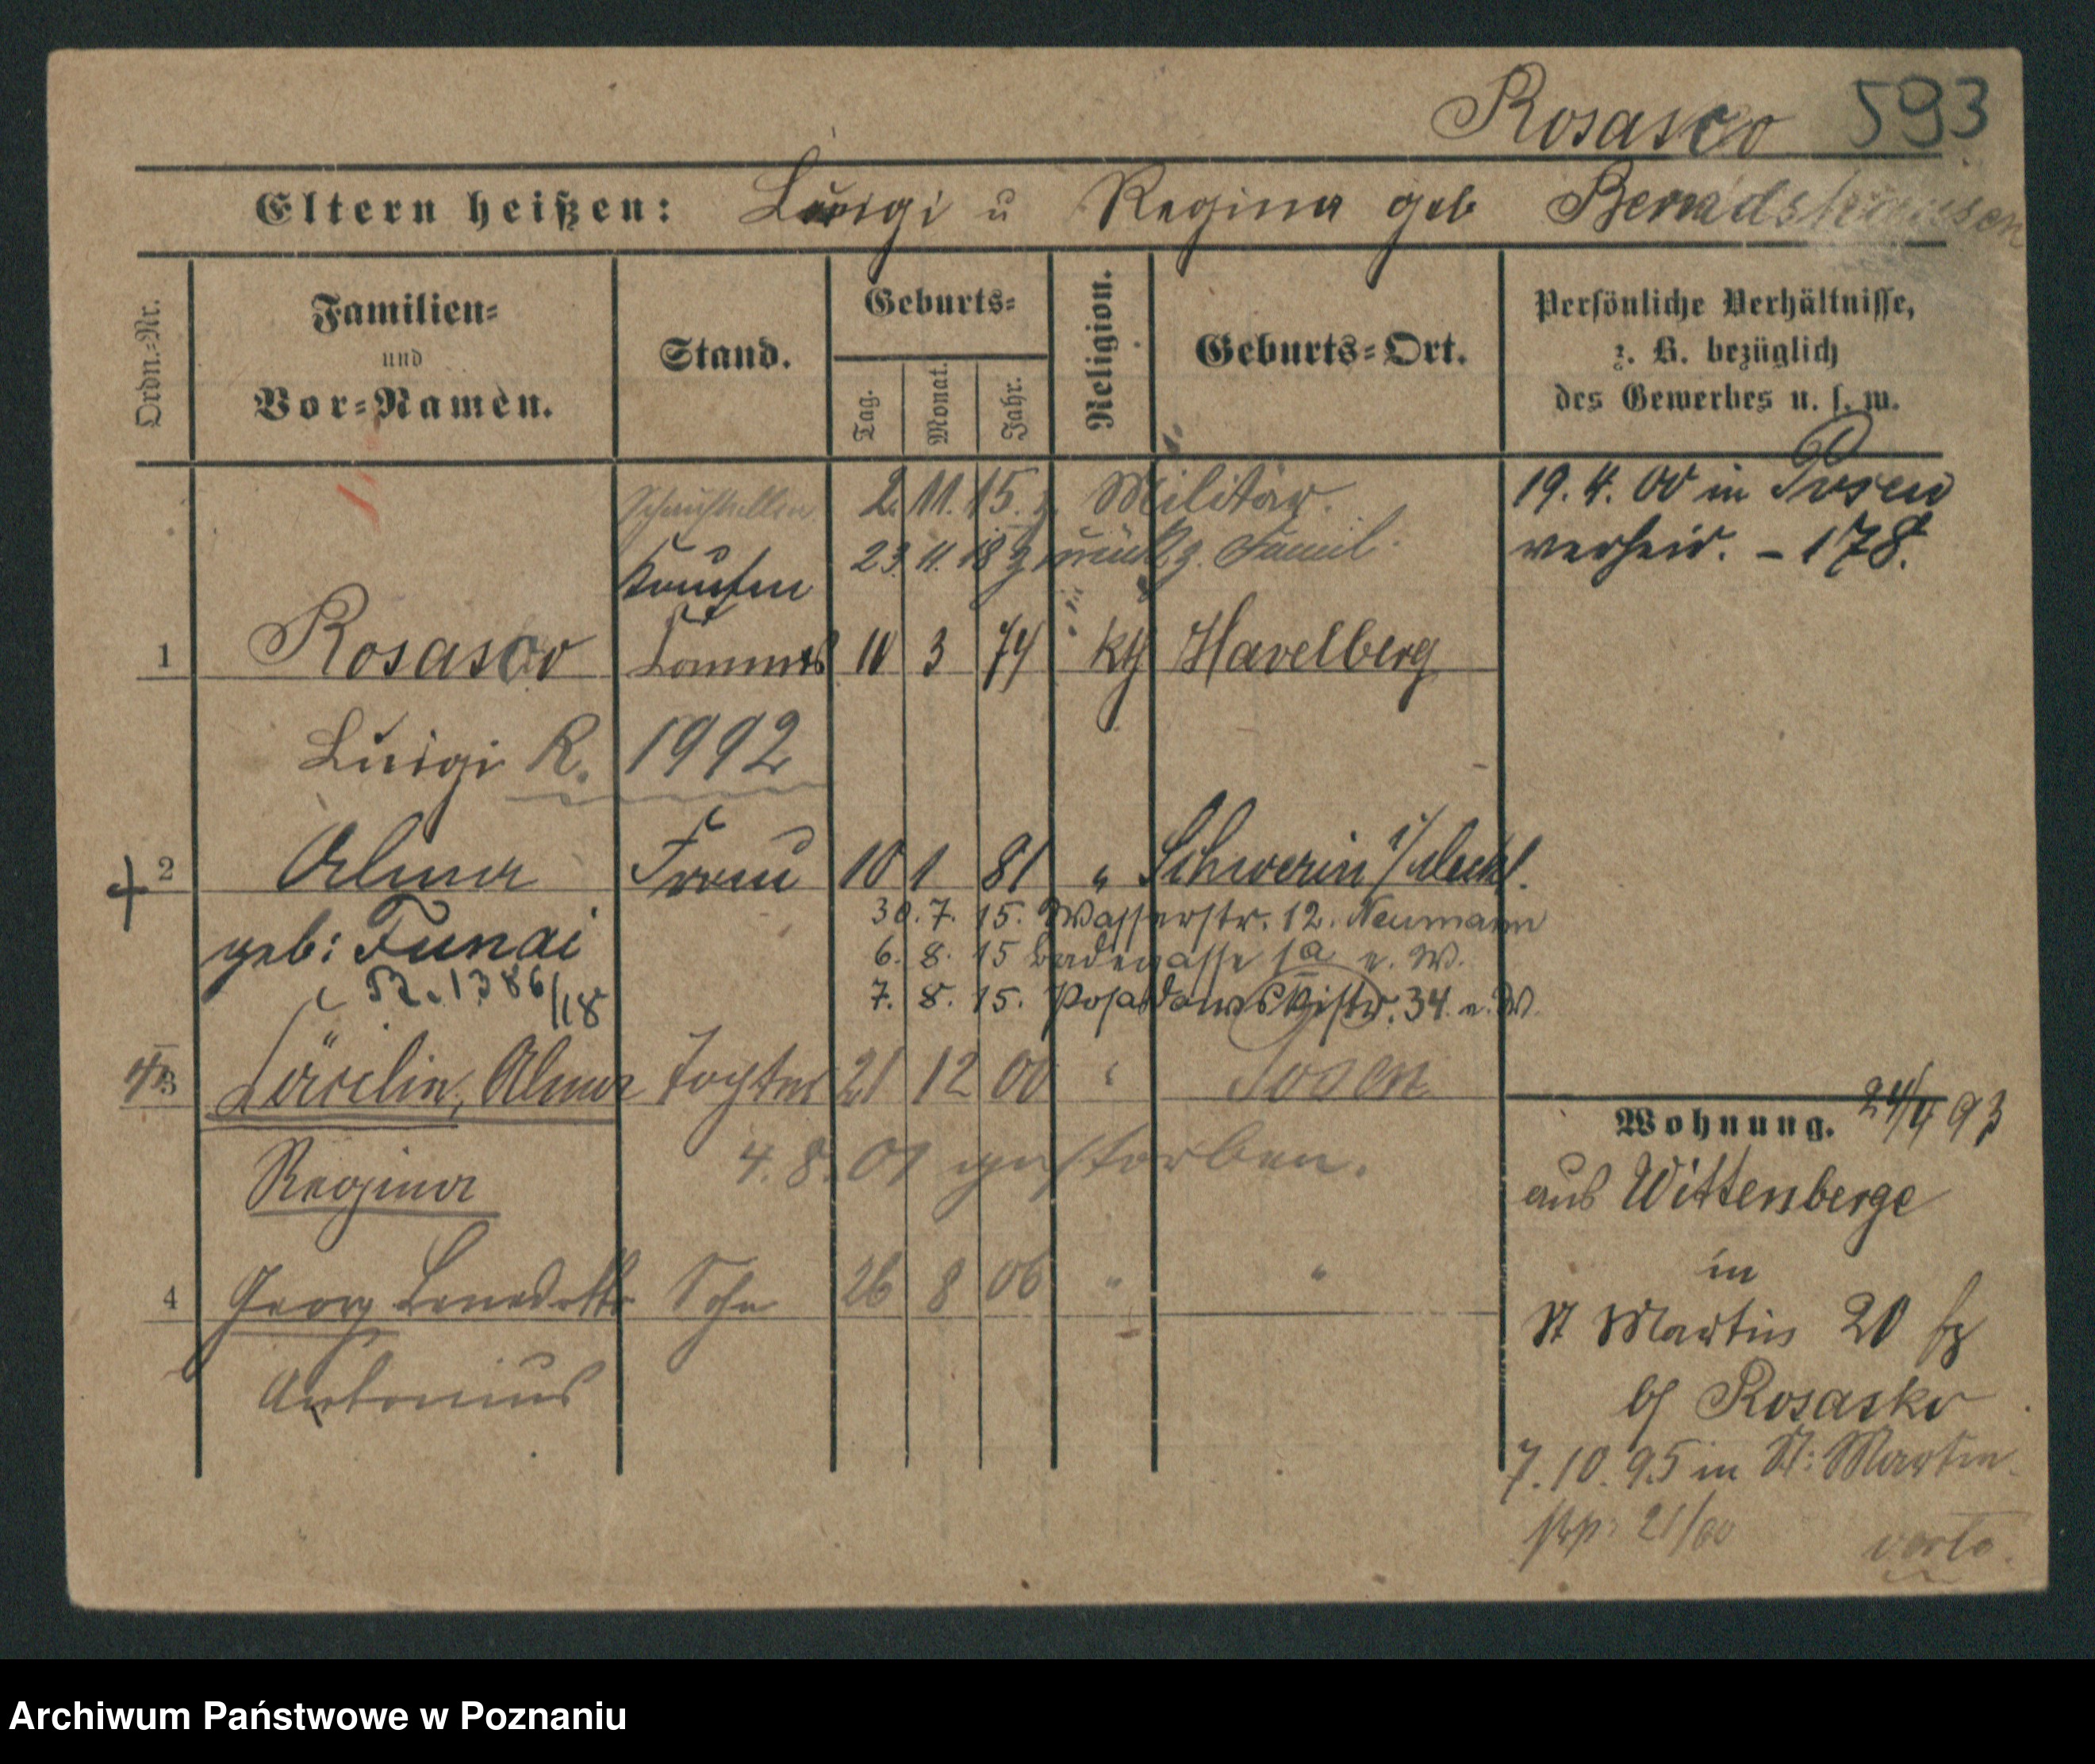 Rosasco 593
Eltern heißen: Luigi u Regina geb
Ordn.-Nr.
Familien-
und
Vor-Namen.
Stand.
Geburts-
Tag.
Monat.
Jahr.
Religion.
Geburts-Ort.
Persönliche Verhältnisse,
z. B. bezüglich
des Gewerbes u. s. w.
2. 11. 15. z. Militär.
23. 11. 18 zurück z. Famil.
19. 4. 00 in Posen
verheir. - 178.
1 Rosasco 10 3 74 kth Havelberg
Luigi R. 1992
2 Alma Frau 10 1 81 " Schwerin i/Meckl.
geb: Funai
30. 7. 15. Wasserstr. 12. Neumann
6. 8. 15 Badegasse 1a e. W.
7. 8. 15. Posadowskystr. 34. e. W.
1386/18
3 Alma Tochter 21 12 00 " Posen
Regina
4. 8. 01 gestorben.
4 Georg Benedetto Sohn 26 8 06 " "
Antonius
Wohnung. 24/4 93
aus Wittenberge
in
St Martin 20
bei Rosasko
7. 10. 95 in St: Martin
21/00
verte.
Archiwum Państwowe w Poznaniu